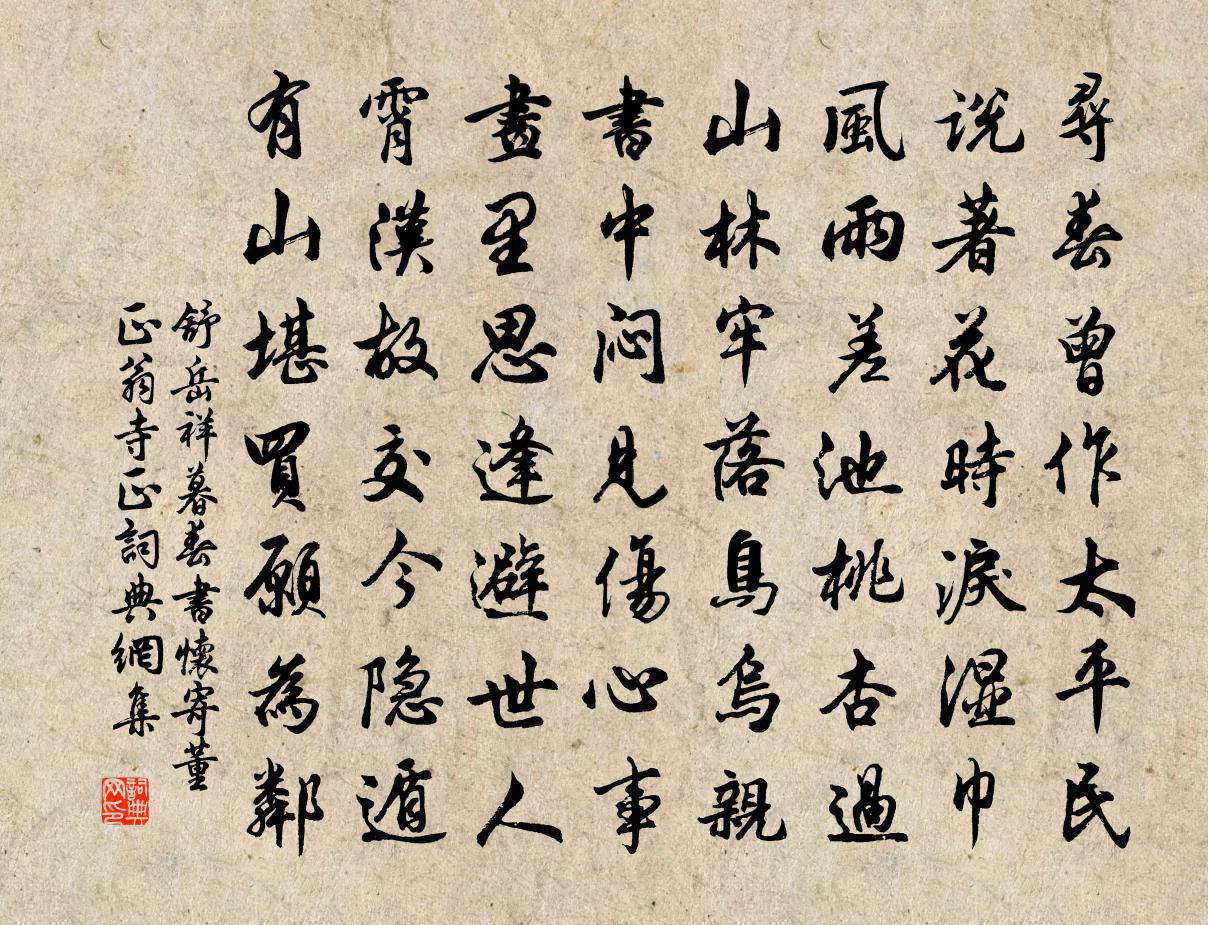 尋春曾作太平民
說著花時淚濕巾
風雨差池桃杏過
山林牢落鳥烏親
書中悶見傷心事
畫里思逢避世人
霄漢故交今隐遁
有山堪買願為鄰
舒岳祥暮春書懷寄董
正翁寺正詞典網集
詞典網印